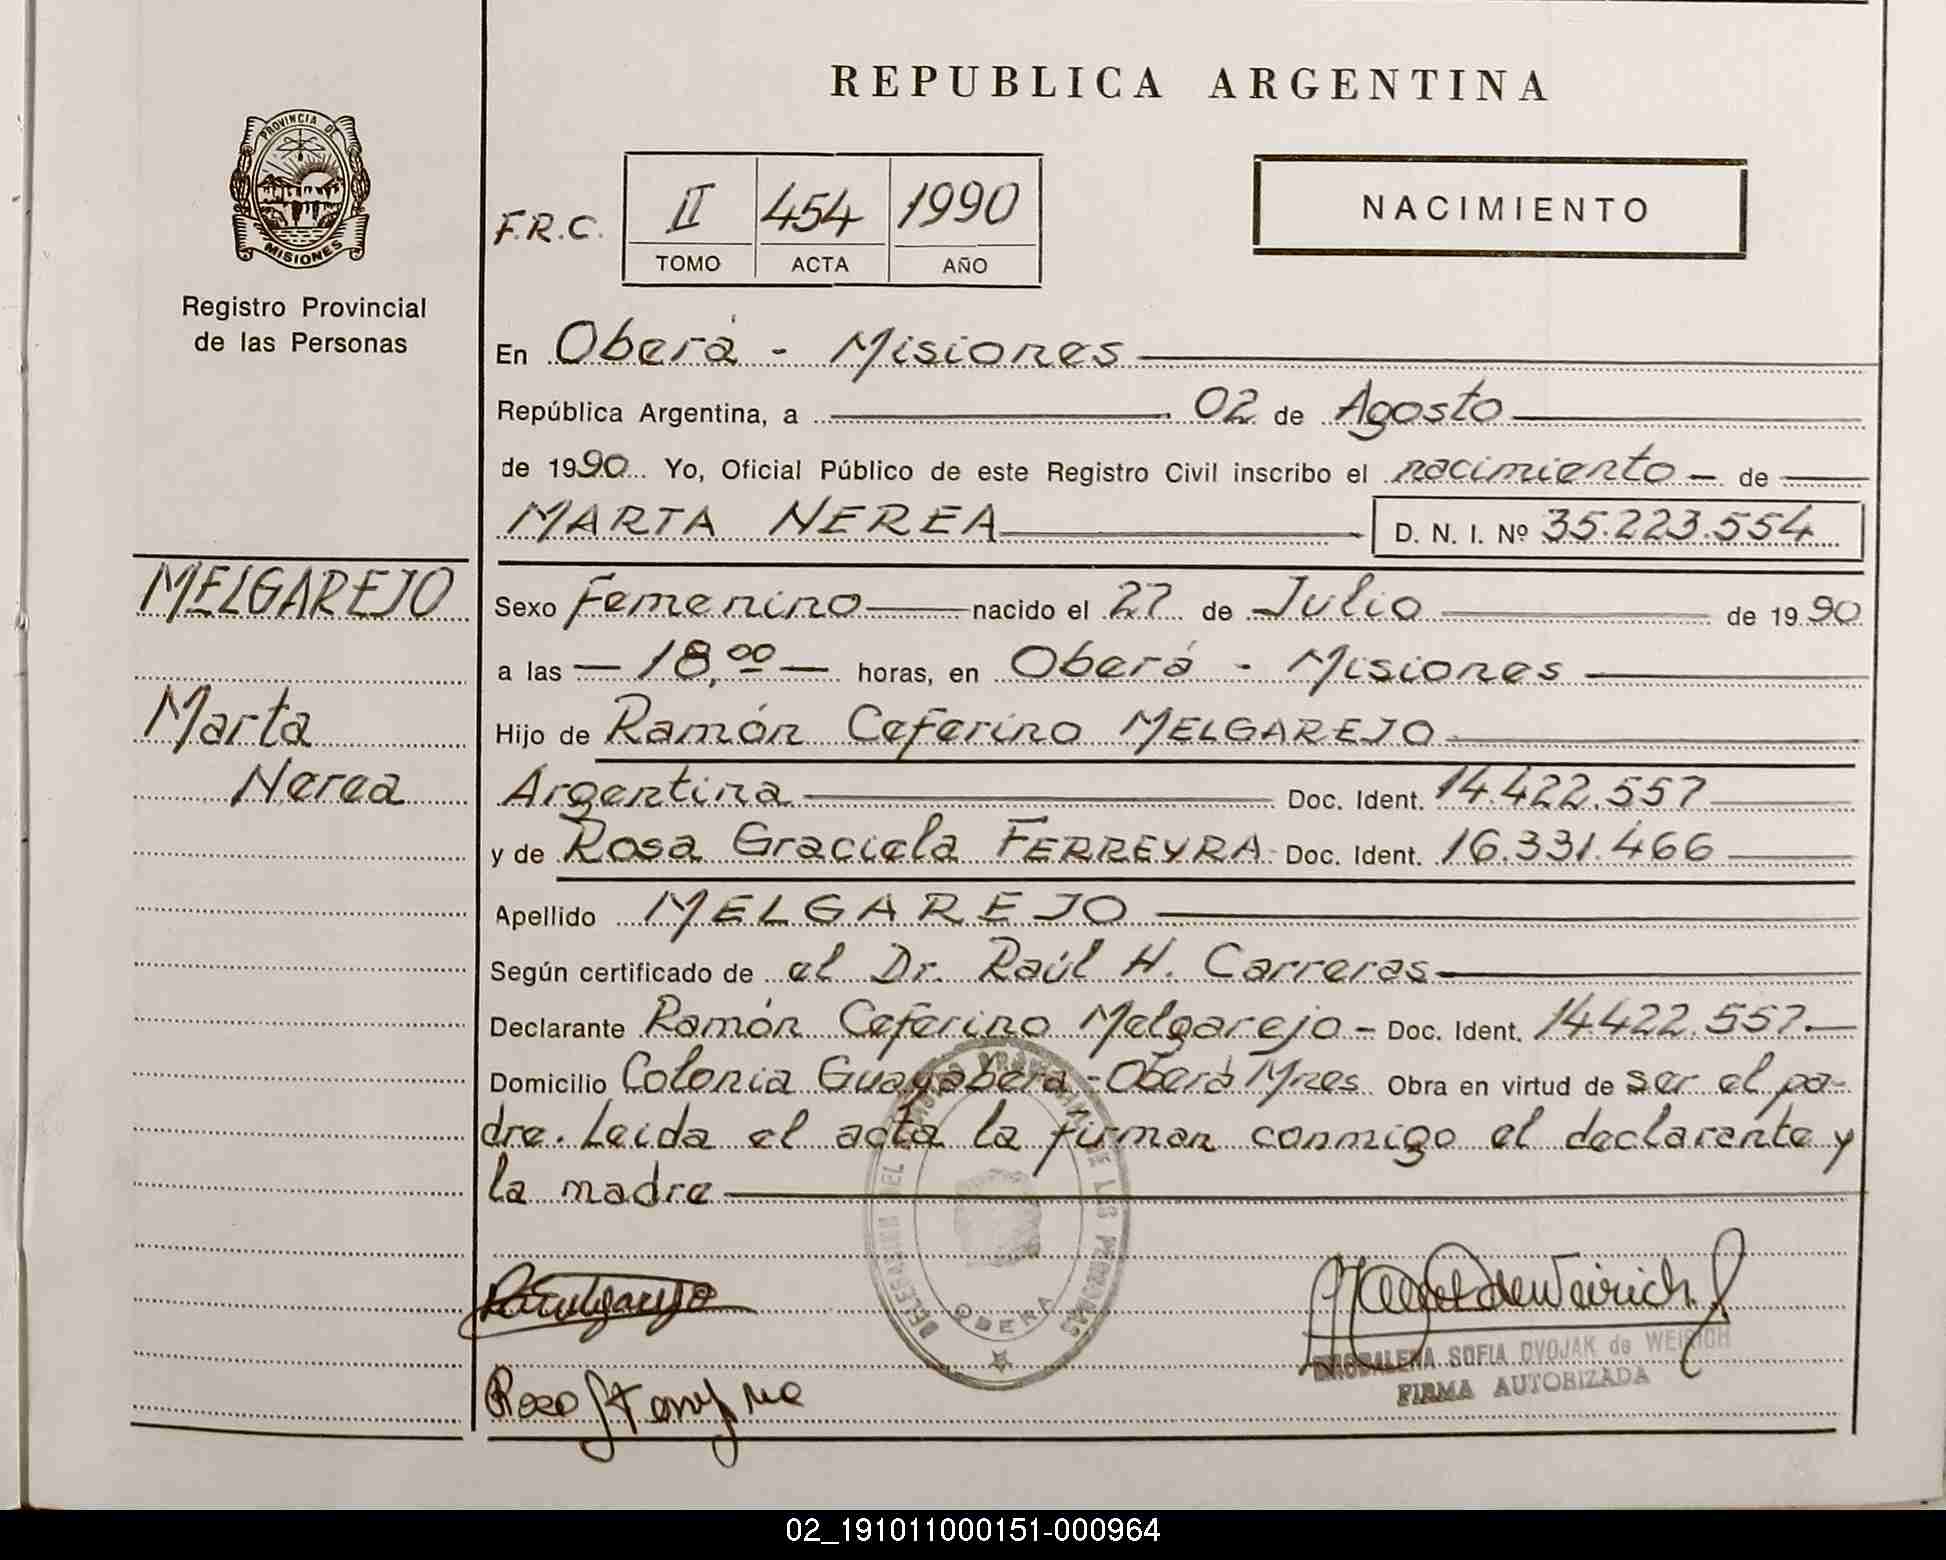 REPUBLICA ARGENTINA
PROVINCIA DE
MISIONES
Registro Provincial
de las Personas
F.R.C.
II 454 1990
TOMO ACTA AÑO
NACIMIENTO
En Oberá - Misiones
República Argentina, a 02 de Agosto
de 1990 Yo, Oficial Público de este Registro Civil inscribo el nacimiento - de
MARTA NEREA D. N. I. Nº 35.223.554
MELGAREJO
Marta
Nerea
Sexo Femenino nacido el 27 de Julio de 1990
a las - 18,00 - horas, en Oberá - Misiones
Hijo de Ramón Ceferino MELGAREJO
Argentina Doc. Ident. 14.422.557
y de Rosa Graciela FERREYRA Doc. Ident. 16.331.466
Apellido MELGAREJO
Según certificado de el Dr. Raúl H. Carreras
Declarante Ramón Ceferino Melgarejo - Doc. Ident. 14.422.557.
Domicilio Colonia Guayabera - Oberá Mnes Obra en virtud de ser el pa-
dre. Leida el acta la firman conmigo el declarante y
la madre
DELEGACION DEL REGISTRO PROVINCIAL DE LAS PERSONAS
OBERA
MAGDALENA SOFIA DVOJAK de WEIRICH
FIRMA AUTORIZADA
02_191011000151-000964